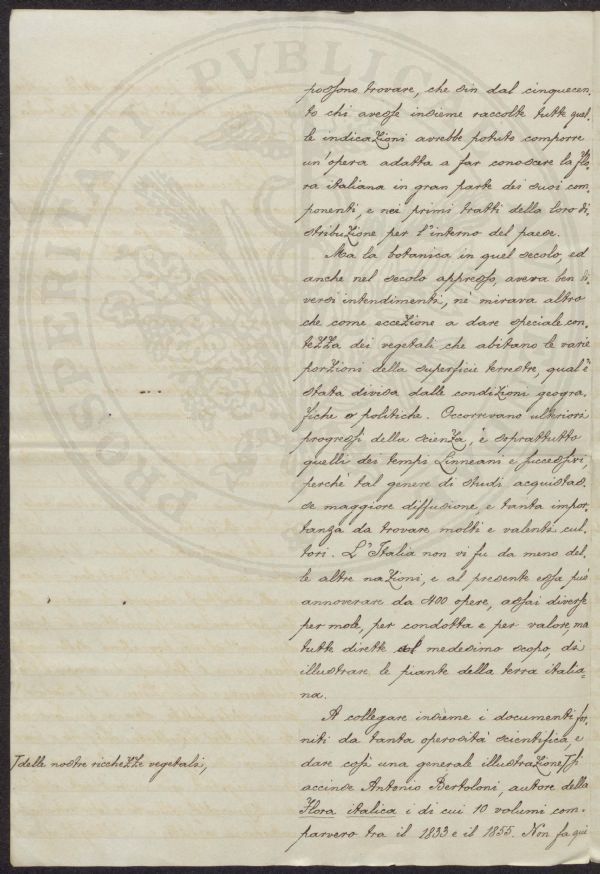 PROSPERITATI PVBLICAE
possono trovare, che sin dal cinquecen-
to chi avesse insieme raccolte tutte quel-
le indicazioni avrebbe potuto comporre
un'opera adatta a far conoscere la flo-
ra italiana in gran parte dei suoi com-
ponenti, e nei primi tratti della loro di-
stribuzione per l'interno del paese.
Ma la botanica in quel secolo, ed
anche nel secolo appresso, aveva ben di-
versi intendimenti, nè mirava altro
che come eccezione a dare speciale con-
tezza dei vegetali che abitano le varie
porzioni della superficie terrestre, qual'è
stata divisa dalle condizioni geogra-
fiche o politiche. Occorrevano ulteriori
progressi della scienza, e soprattutto
quelli dei tempi Linneani e successivi,
perchè tal genere di studi acquistas-
se maggiore diffusione, e tanta impor-
tanza da trovare molti e valenti cul-
tori. L'Italia non vi fu da meno del-
le altre nazioni, e al presente essa può
annoverare da 400 opere, assai diverse
per mole, per condotta e per valore, ma
tutte dirette al medesimo scopo, di
illustrare le piante della terra italia-
na.
A collegare insieme i documenti for-
niti da tanta operosità scientifica, e
dare così una generale illustrazione si
delle nostre ricchezze vegetali,
accinse Antonio Bertoloni, autore della
Flora italica i di cui 10 volumi com-
parvero tra il 1833 e il 1855. Non fa qui